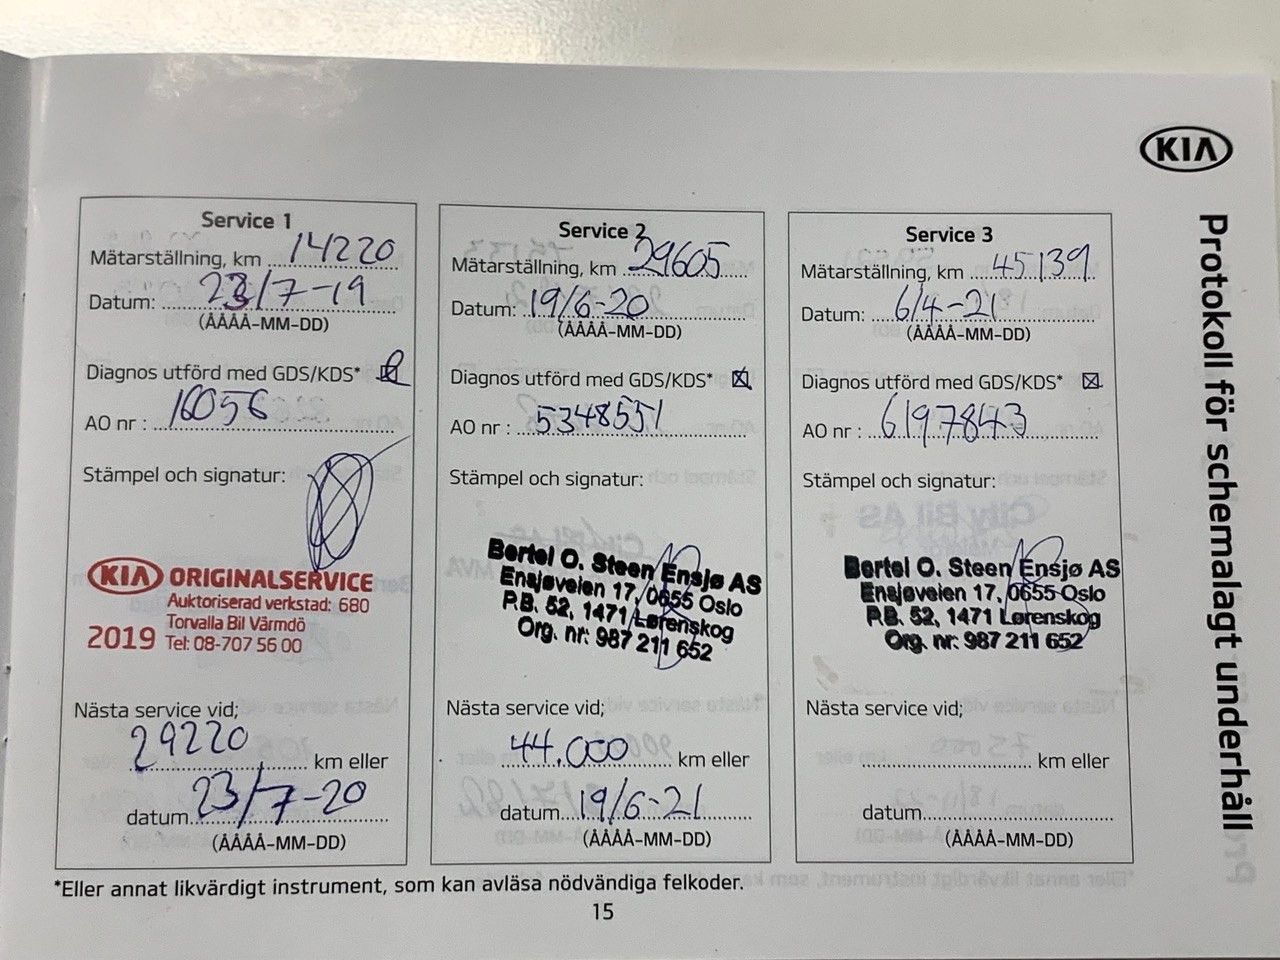 KIA
Protokoll för schemalagt underhåll
Service 1
Mätarställning, km 14220
Datum: 23/7-19
(ÅÅÅÅ-MM-DD)
Diagnos utförd med GDS/KDS*
AO nr : 16056
Stämpel och signatur:
KIA ORIGINALSERVICE
Auktoriserad verkstad: 680
Torvalla Bil Värmdö
2019 Tel: 08-707 56 00
Nästa service vid;
29220 km eller
datum 23/7-20
(ÅÅÅÅ-MM-DD)
Service 2
Mätarställning, km 29605
Datum: 19/6-20
(ÅÅÅÅ-MM-DD)
Diagnos utförd med GDS/KDS* ☒
AO nr : 5348551
Stämpel och signatur:
Bertel O. Steen Ensjø AS
Ensjøveien 17, 0655 Oslo
P.B. 52, 1471 Lørenskog
Org. nr: 987 211 652
Nästa service vid;
44.000 km eller
datum 19/6-21
(ÅÅÅÅ-MM-DD)
Service 3
Mätarställning, km 45139
Datum: 6/4-21
(ÅÅÅÅ-MM-DD)
Diagnos utförd med GDS/KDS* ☒
AO nr : 6197843
Stämpel och signatur:
Bertel O. Steen Ensjø AS
Ensjøveien 17, 0655 Oslo
P.B. 52, 1471 Lørenskog
Org. nr: 987 211 652
Nästa service vid;
km eller
datum
(ÅÅÅÅ-MM-DD)
*Eller annat likvärdigt instrument, som kan avläsa nödvändiga felkoder.
15